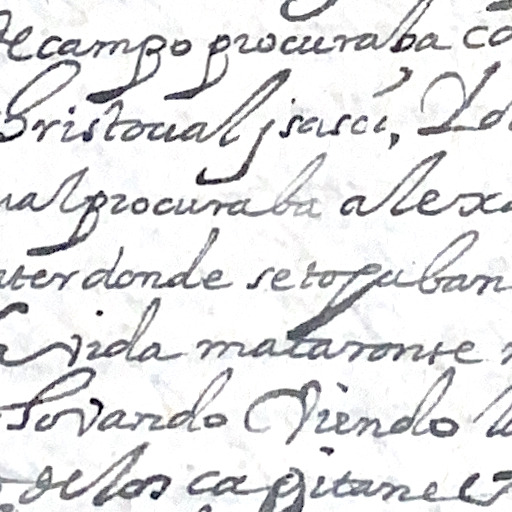 de campo procuraba co
bristoual jsasci, Do
ual procuraba alexa
nter donde se topaban
a vida mataronse
Lobando Viendo l
de los capitanes